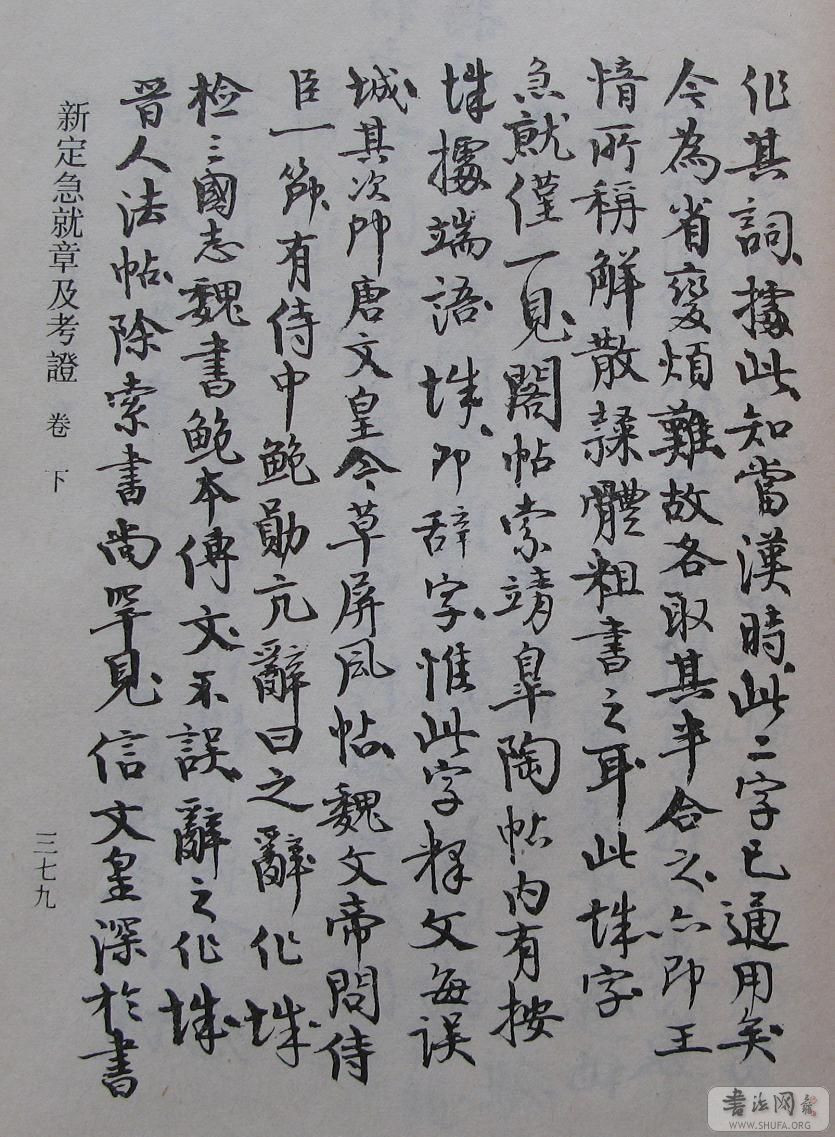 作其詞據此知當漢時此二字已通用矣
今為省變煩難故各取其半合之亦即王
愔所稱解散隸體粗書之耳此㛮字
急就僅一見閣帖索靖皋陶帖内有按
據端語即辞字惟此字釋文每誤
城其次帥唐文皇今草屏風帖魏文帝問侍
臣一節有侍中鮑勛亢辭曰之辭作
檢三國志魏書鮑本傳文不誤辭之作
晉人法帖除索書尚罕見信文皇深於書
新定急就章及考證 卷下
三七九
書法网
WWW.SHUFA.ORG